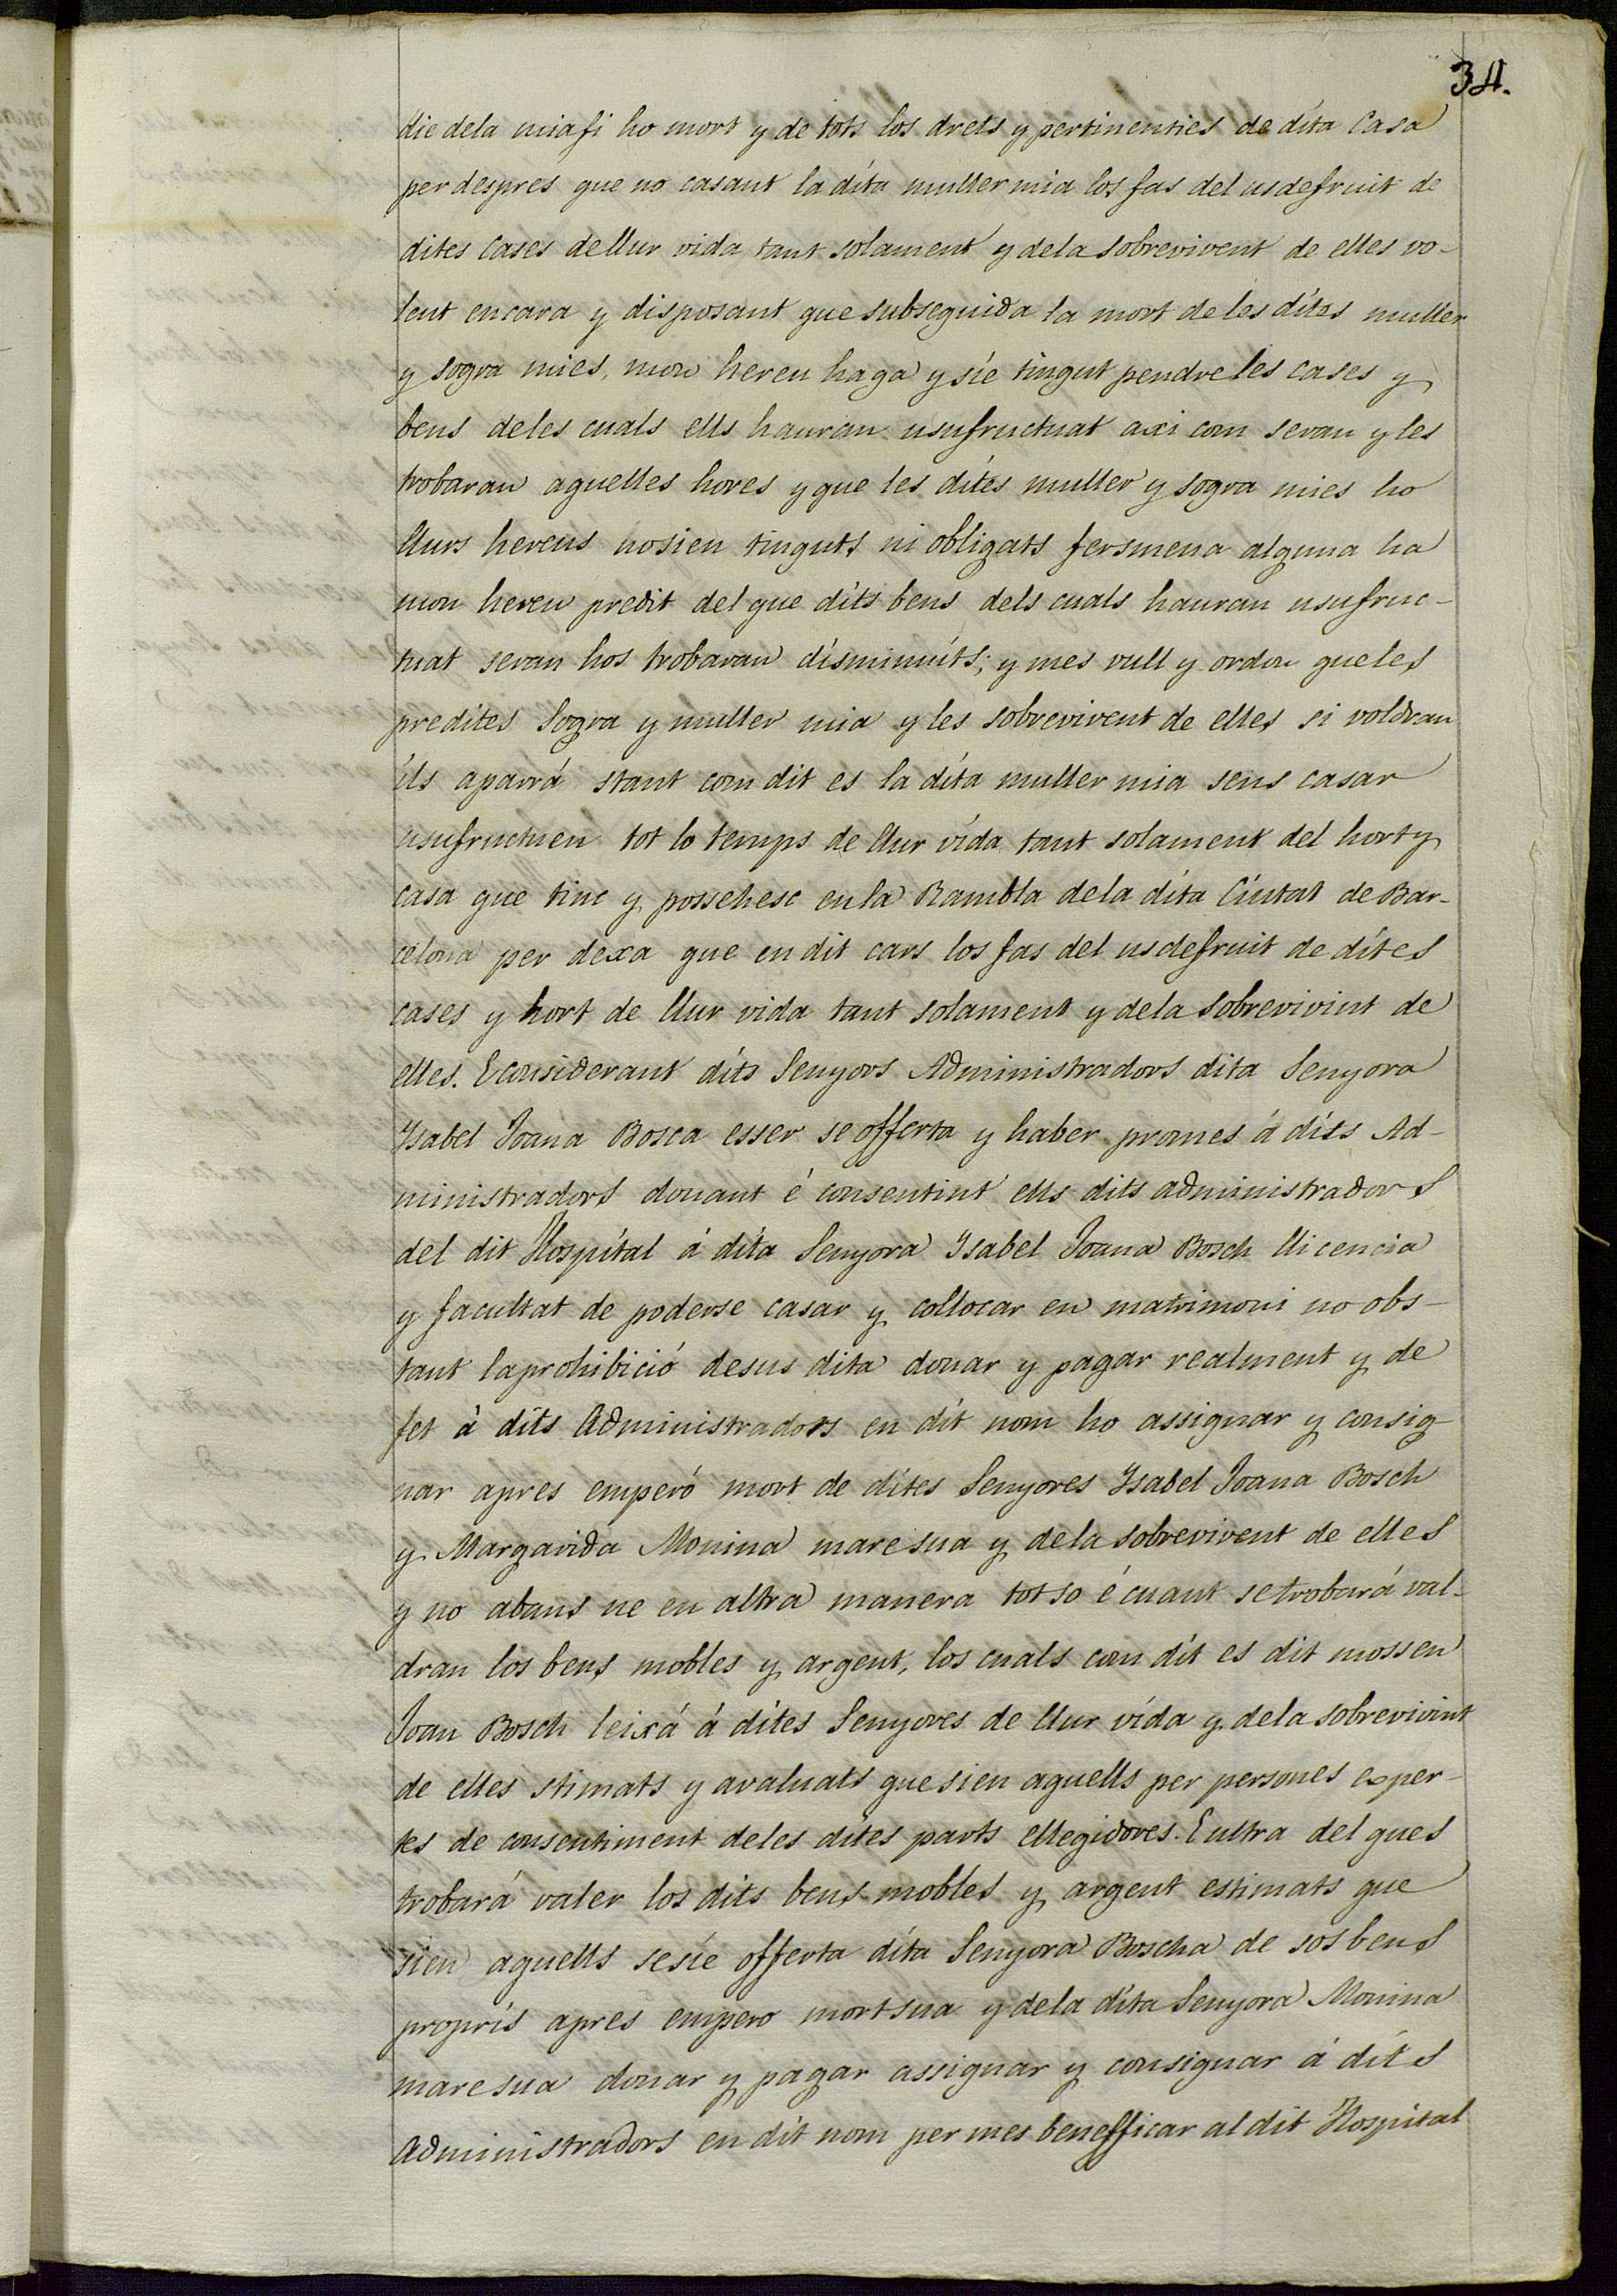 34.
die dela miafi ho mort y de tots los drets y pertinenties de díta Casa
per despres que no casant la díta muller mia los fas del usdefruit de
dites Cases dellur vida tant solament y dela sobrevivent de elles vo-
lent encara y disposant que subseguida la mort de les dítes muller
y sogra mies, mon hereu haga y síe tingut pendre les cases y
bens deles cuals ells hauran usufructuat axi com seran y les
trobaran aquelles hores y que les dítes muller y sogra mies ho
llurs hereus nosien tinguts ni obligats fersmena alguna ha
mon hereu predit del que díts bens dels cuals hauran usufruc-
tuat seran hos trobaran dísminuíts; y mes vull y ordon que les
predites Sogra y muller mia y les sobrevivent de elles si voldran
íls aparrá stant com dit es la díta muller mia sens casar
usufructuen tot lo temps de llur vída tant solament del hort y
casa que tinc y possehesc en la Rambla dela díta Cíutat de Bar-
celona per dexa que en dit cars los fas del usdefruit de dítes
cases y hort de llur vida tant solament y dela Sobrevivint de
elles. E considerant díts Senyors Administradors dita Senyora
Ysabel Joana Bosca esser se offerta y haber promes á díts Ad-
ministradors donant é consentint ells dits administradors
del dit Hospítal á díta Senyora Ysabel Joana Bosch llicencia
y facultat de poderse casar y collocar en matrimoni no obs-
tant laprohibició desus dita donar y pagar realment y de
fet à díts Administradors en dít nom ho assignar y consig
nar apres emperó mort de dítes Senyores Ysabel Joana Bosch
y Margarida Monina mare sua y dela sobrevivent de elles
y no abans ne en altra manera tot so é cuant se trobará val-
dran los bens mobles y argent, los cuals com dít es dit mossen
Joan Bosch leixá á dítes Senyores de llur vída y dela sobrevivint
de elles stimats y avaluats que sien aquells per persones exper-
tes de consentiment deles dítes parts ellegidores. E ultra del ques
trobará valer los díts bens mobles y argent estimats que
síen aquells sesíe offerta díta Senyora Boscha de sos bens
propris apres empero mort sua y dela díta Senyora Monina
mare sua donar y pagar assignar y consignar á díts
Administradors en dít nom per mes benefficar al dit Hospital